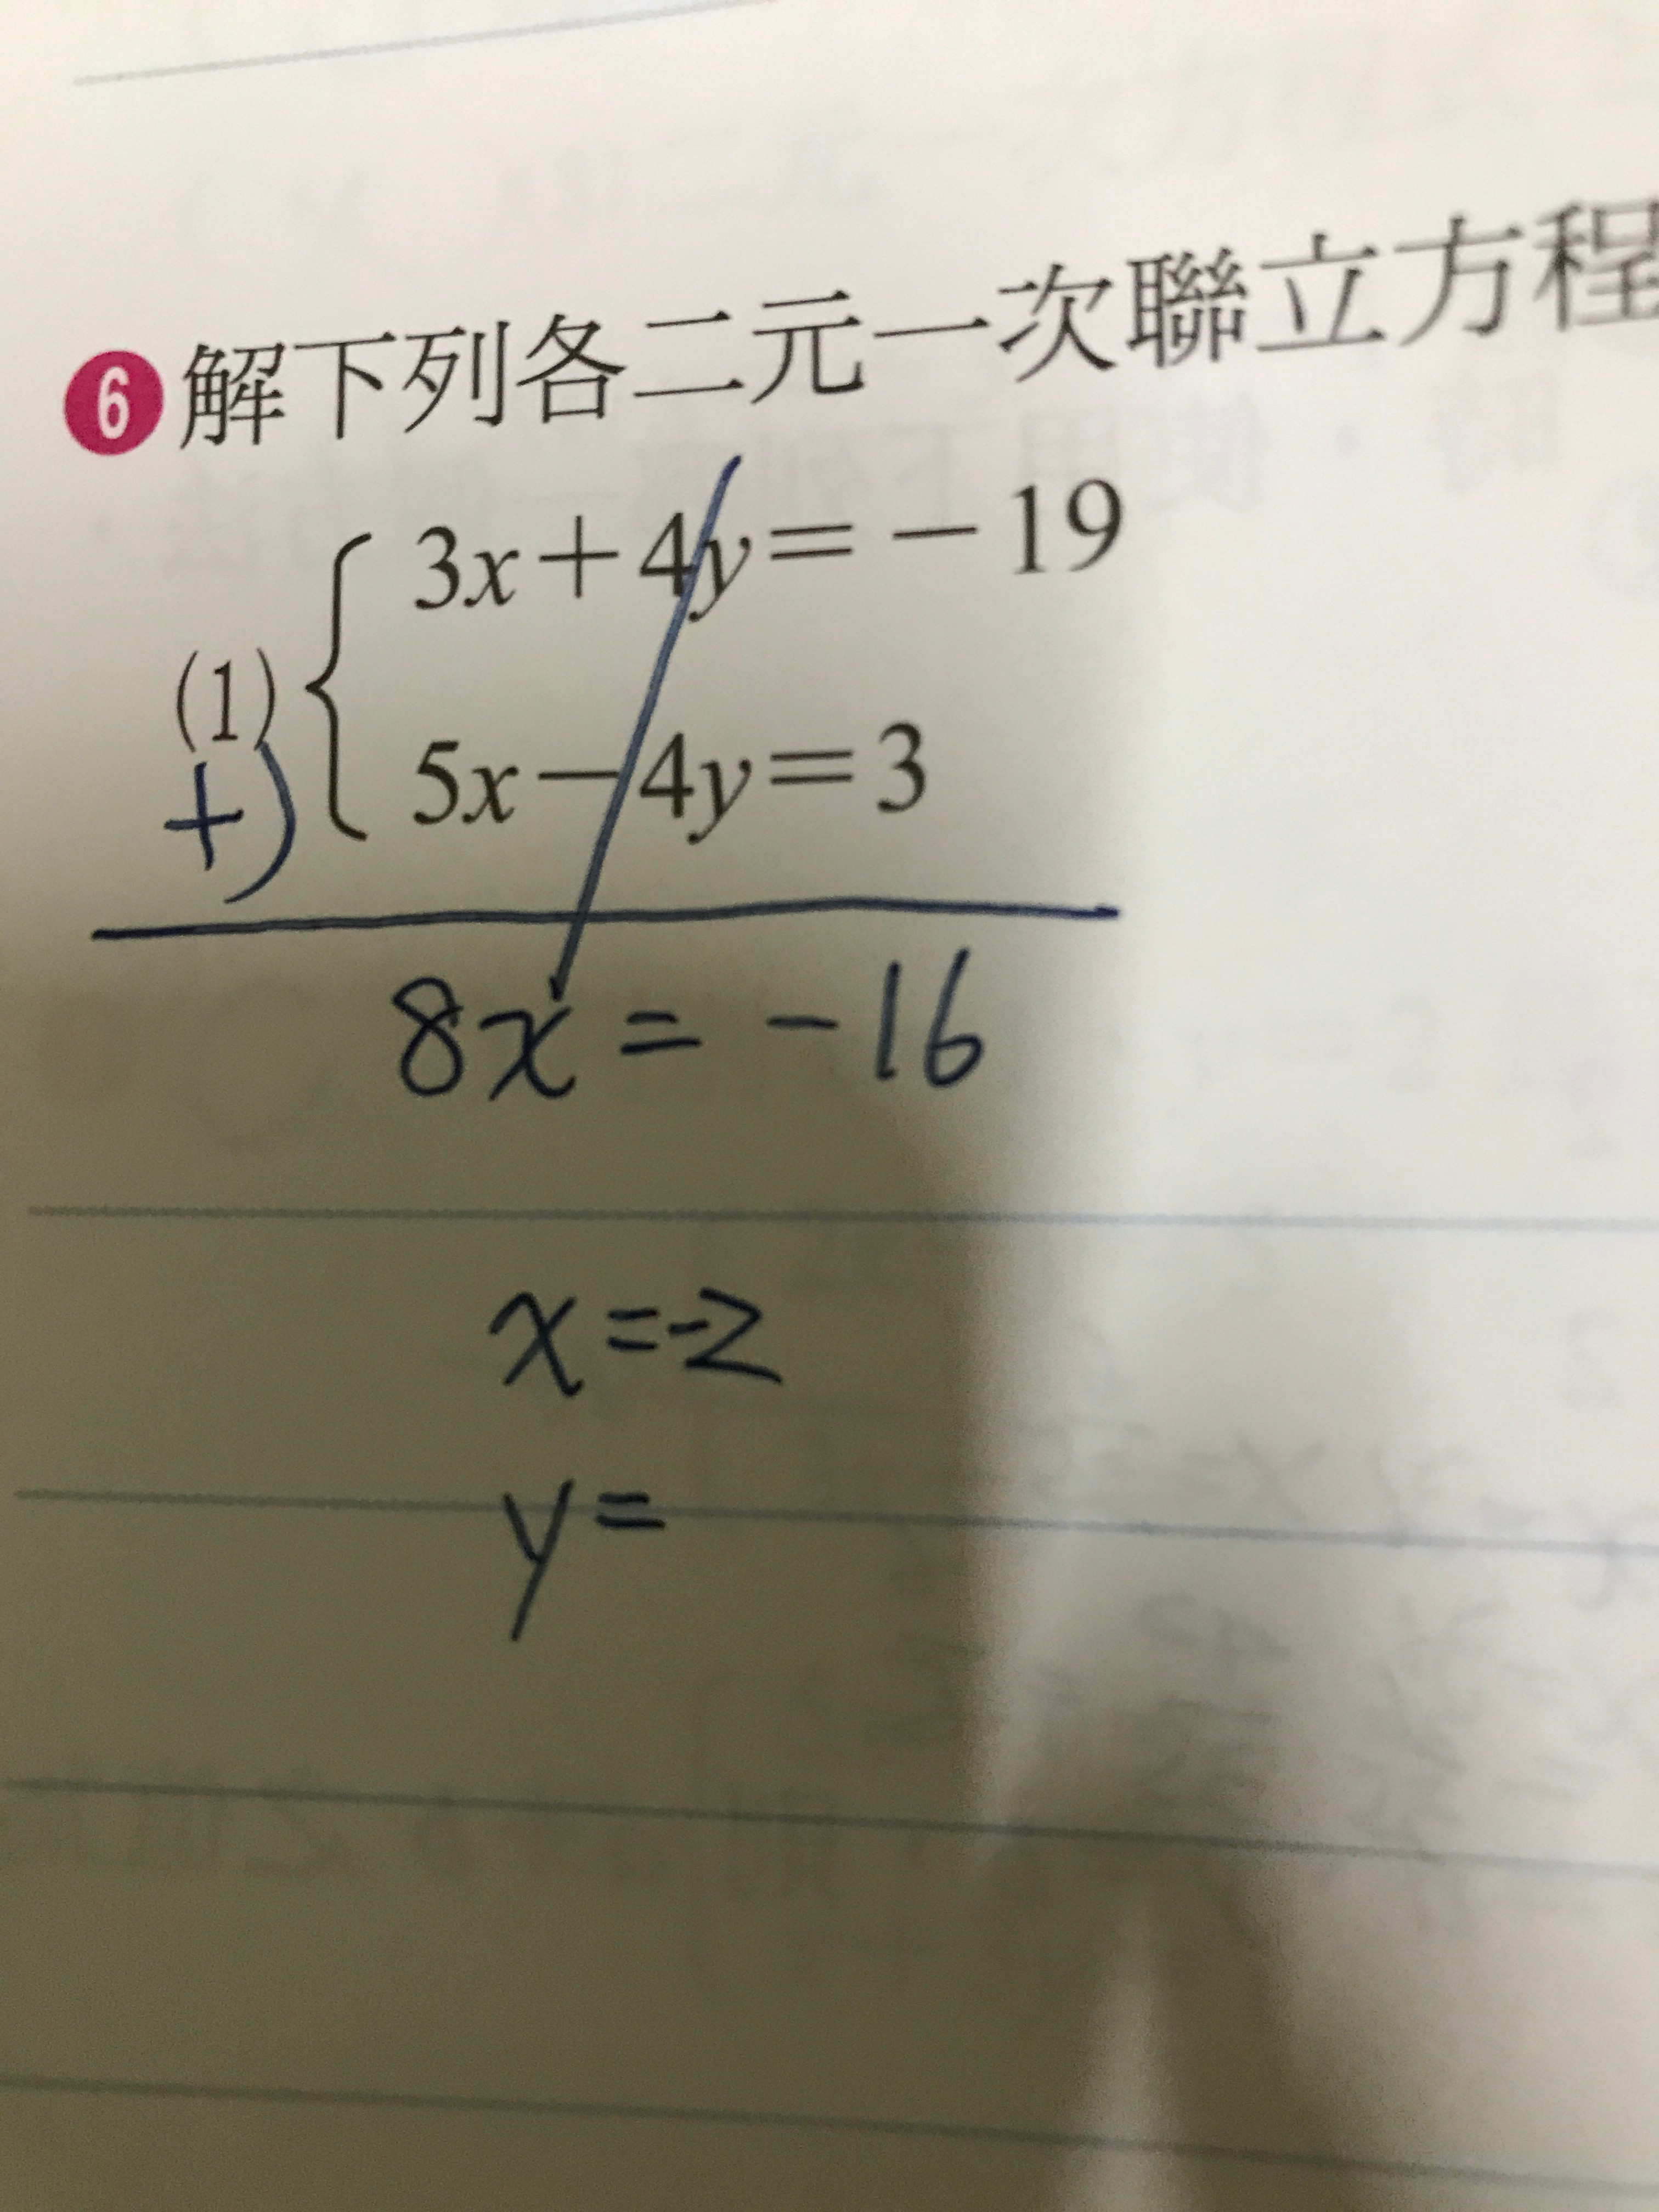 6 解下列各二元一次聯立方程
3x+4y=-19
(1)
5x-4y=3
+)
8x=-16
x=-2
y=